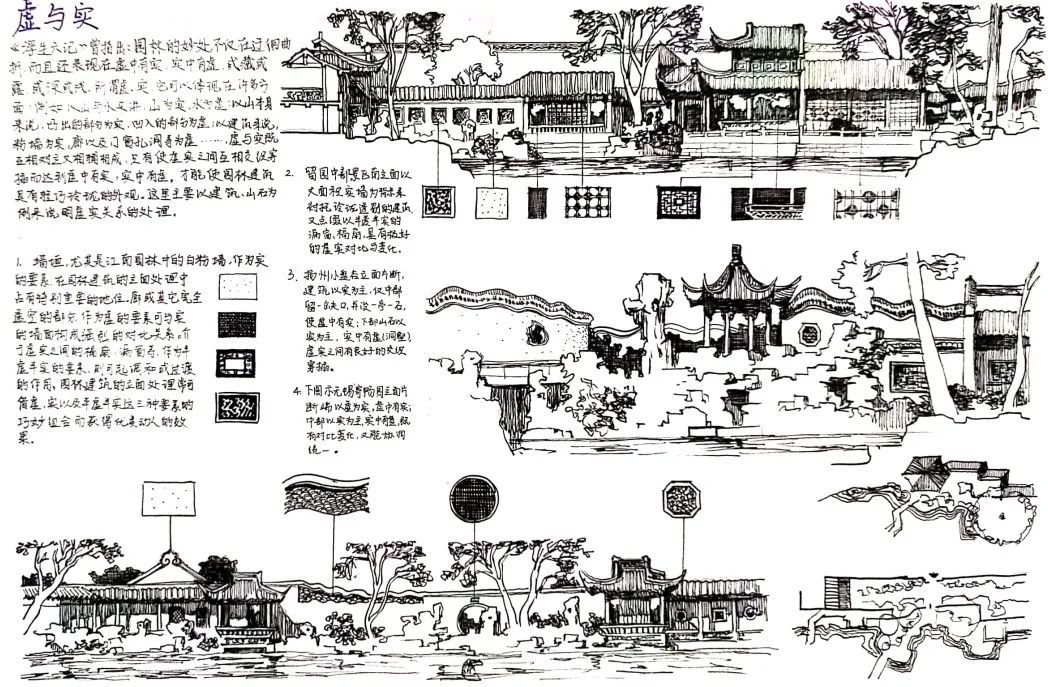 虚与实
《浮生六记》曾指出:园林的妙处不仅在迂徊曲
折,而且还表现在虚中有实,实中有虚,或藏或
露,或深或浅,所谓虚、实它可以体现在许多方
面:例如以山与水来讲,山为实,水为虚;以山本身
来说,凸出的部分为实,凹入的部分为虚;以建筑来说,
粉墙为实,廊以及门窗孔洞等为虚……,虚与实既
互相对立又相辅相成,只有使虚实之间互相交织穿
插而达到虚中有实,实中有虚,才能使园林建筑
具有轻巧玲珑的外观。这里主要以建筑、山石为
例来说明虚实关系的处理。
1. 墙垣,尤其是江南园林中的白粉墙,作为实
的要素,在园林建筑的立面处理中
占有特别重要的地位。廊或其它完全
虚空的部分作为虚的要素可与实
的墙面构成强烈的对比关系。介
于虚实之间的槅扇、漏窗等,作为半
虚半实的要素,则可起调和或过渡
的作用。园林建筑的立面处理常可
借虚,实以及半虚半实这三种要素的
巧妙组合而获得优美动人的效
果。
2. 留园中部景区西立面以
大面积实墙为背景来
衬托玲珑透剔的建筑
又点缀以半虚半实的
漏窗、槅扇,具有极好
的虚实对比与变化。
3. 扬州小盘谷立面片断,
建筑以实为主,仅中部
留一缺口,并设一亭一石,
使虚中有实;下部山石以
实为主,实中有虚(洞壑)
虚实之间有良好的交织
穿插。
4. 下图示无锡寄畅园立面片
断 端以虚为实,虚中有实;
中部以实为主,实中有虚,既
有对比变化,又能协调
统一。